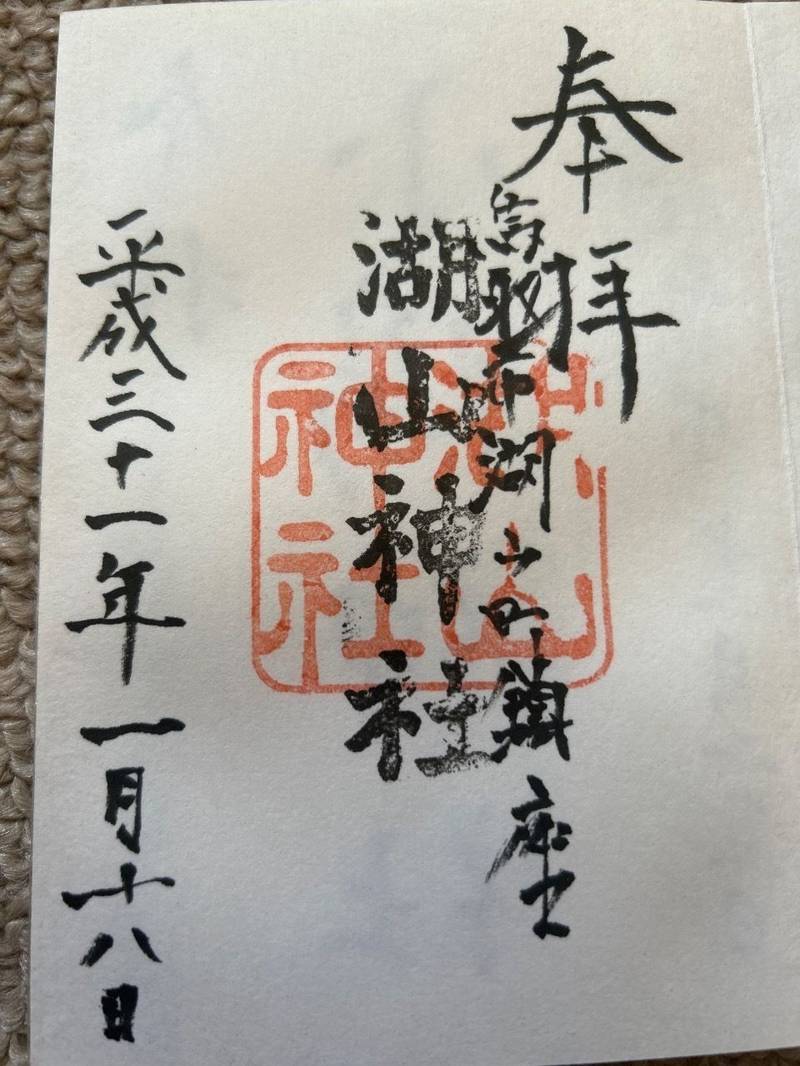 奉拝
鳥取市湖山町鎮座
湖山神社
湖山
神社
平成三十一年一月十八日